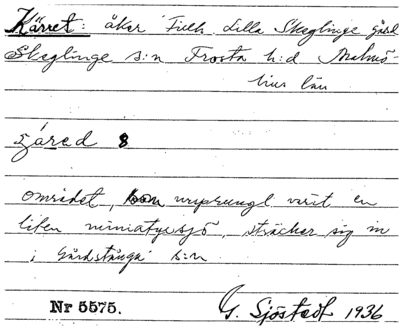 Kärret: åker tillh. Lilla Skeglinge gård
Skeglinge s:n Frosta h:d Malmö-
hus län
8
området, som ursprungl varit en
liten miniatyrsjö, sträcker sig in
i Gårdstånga s:n
Nr 5575. G. Sjöstedt 1936